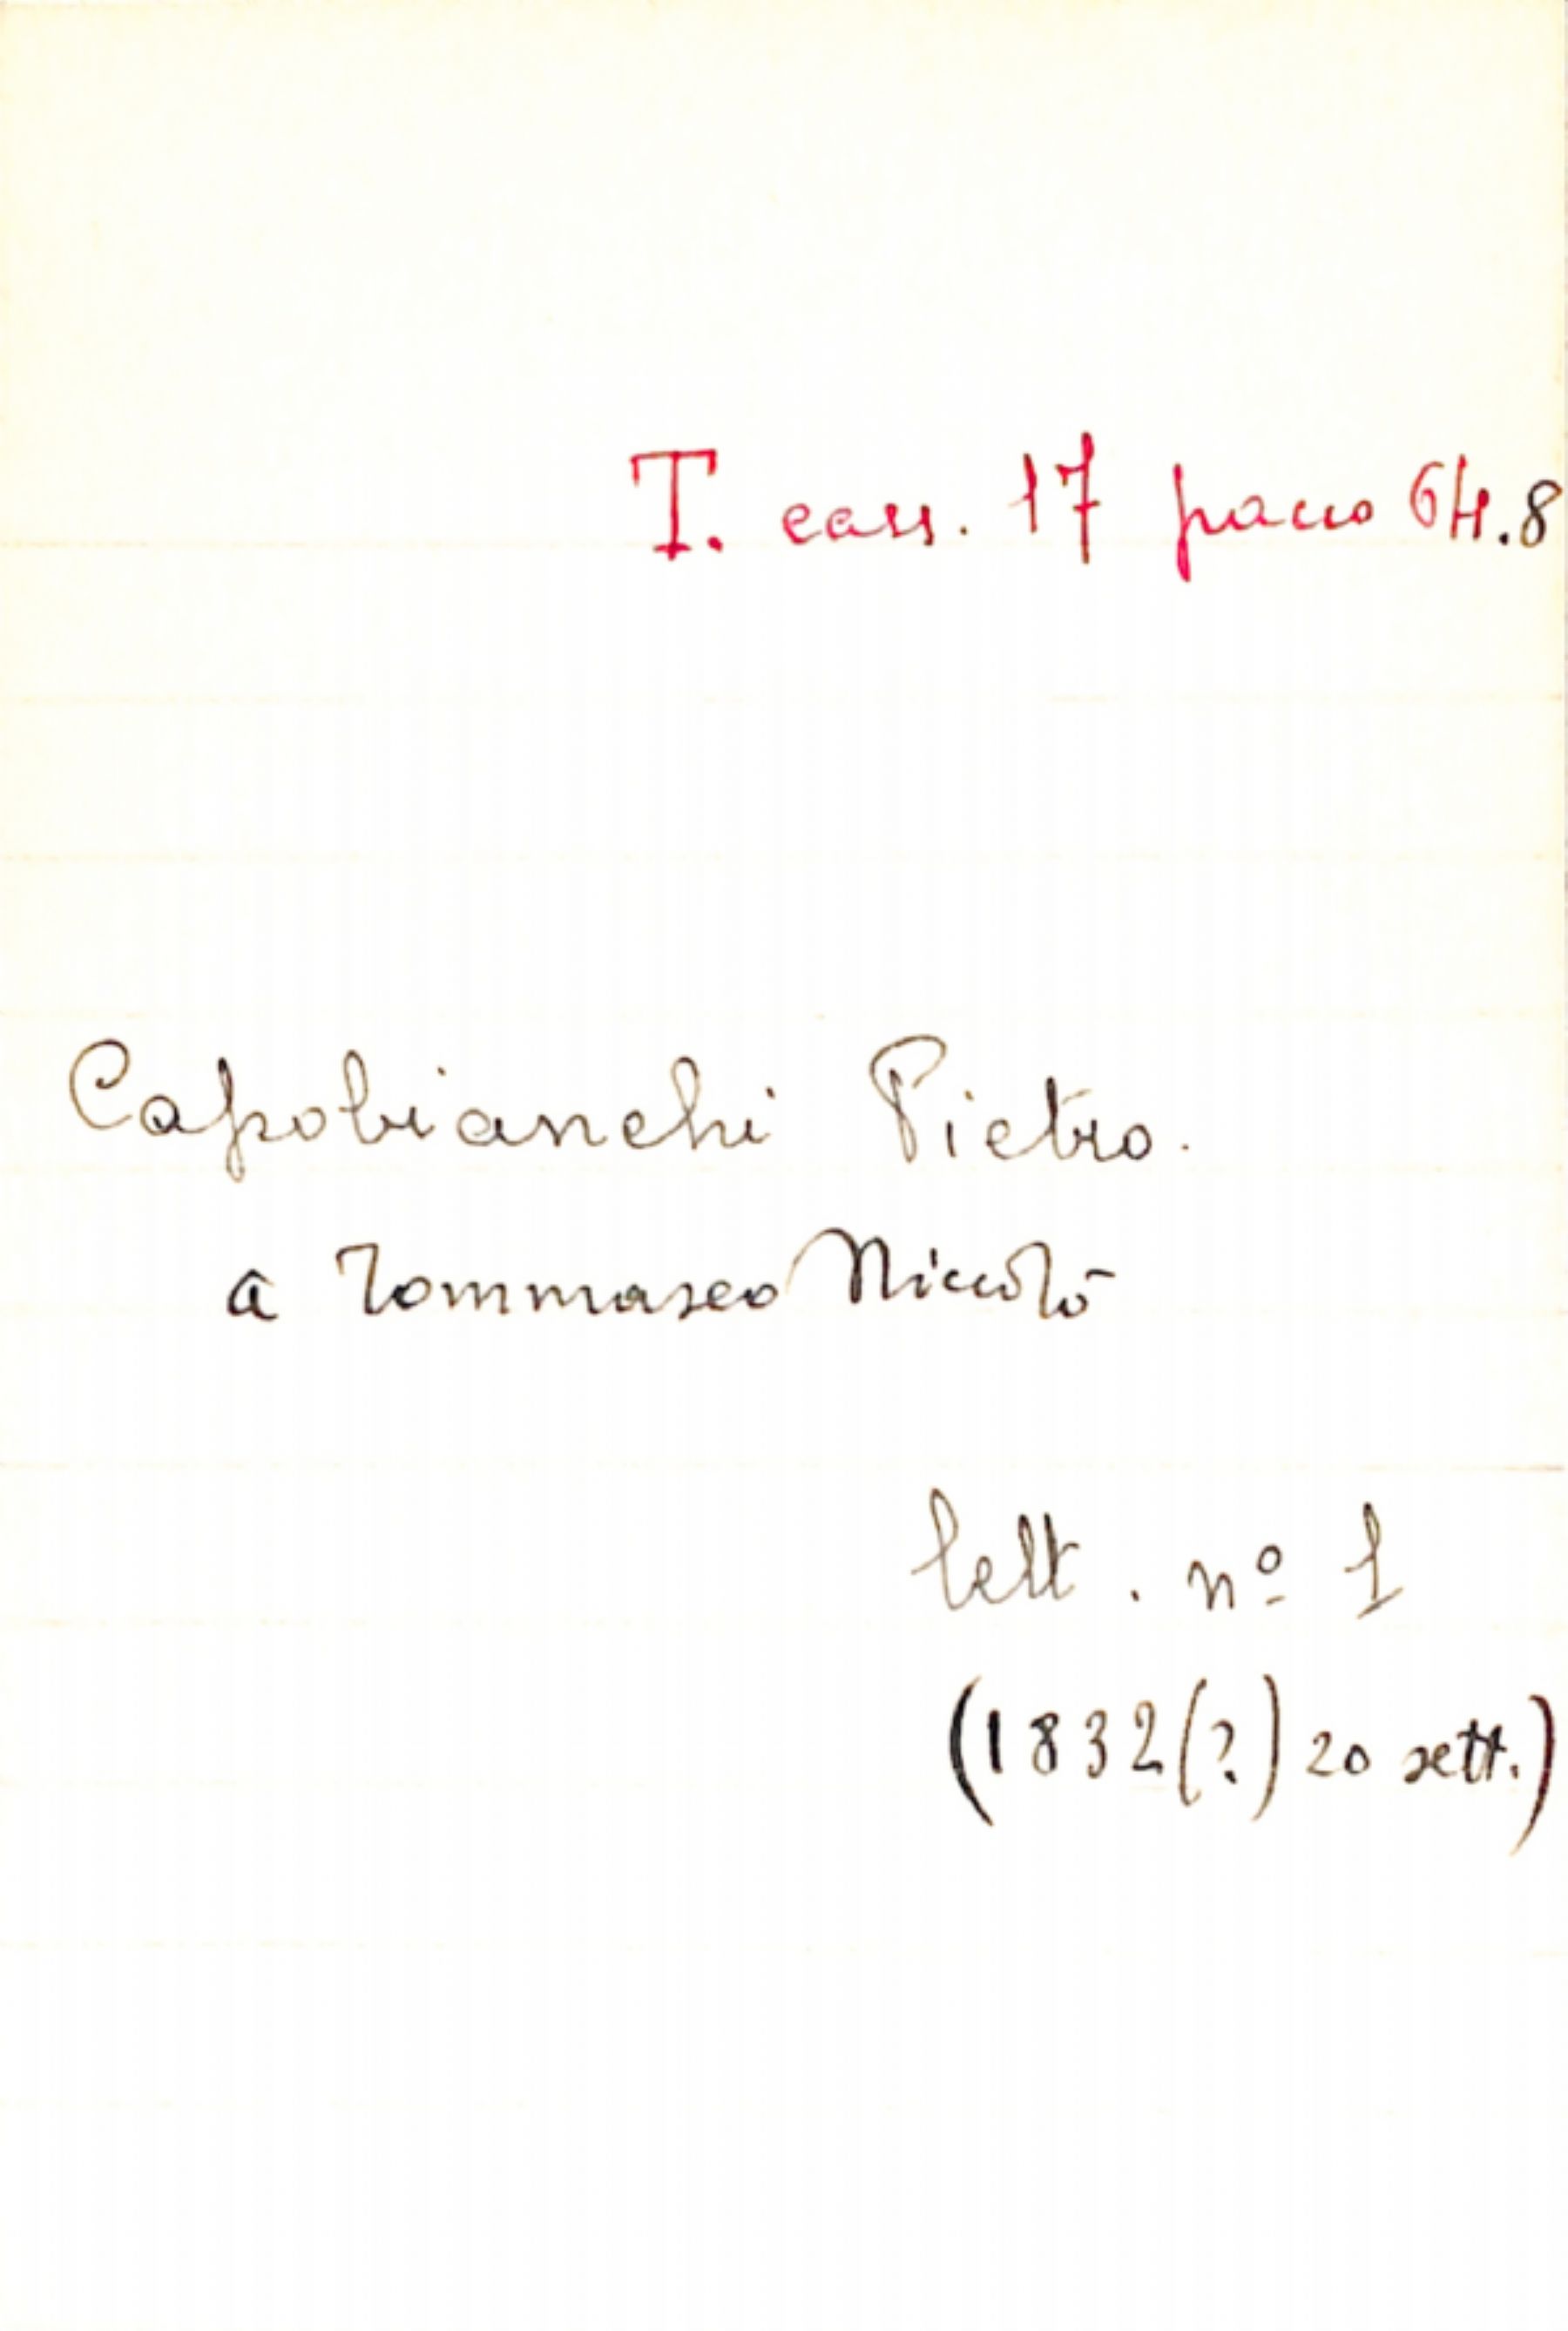 T. cass. 17 pacco 64.8
Capobianchi Pietro.
a Tommaseo Niccolò
lett. nº 1
(1832(?) 20 sett.)